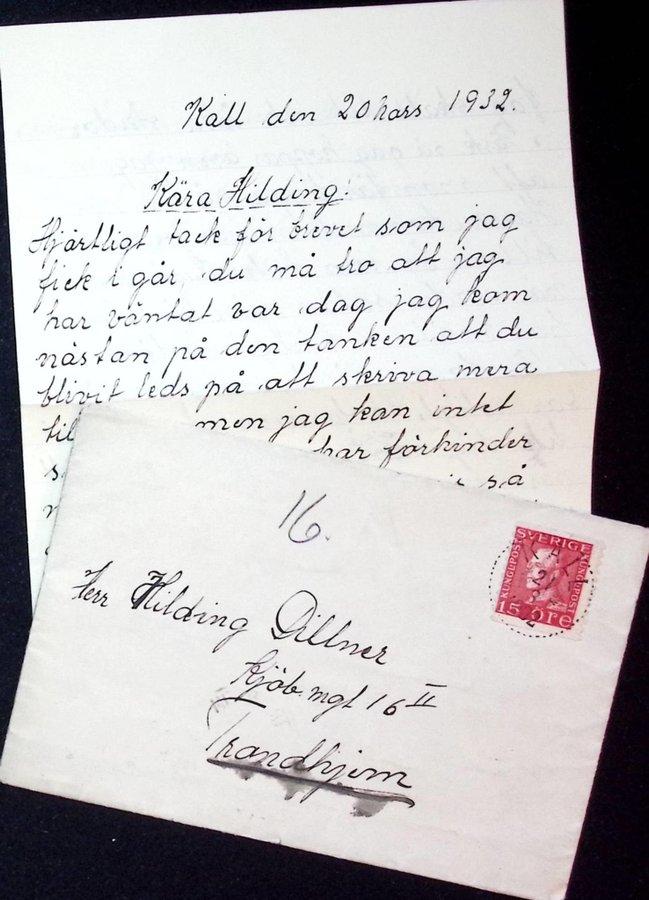 Kall den 20 Mars 1932.
Kära Hilding!
Hjärtligt tack för brevet som jag
fick i går, du må tro att jag
har väntat var dag jag kom
nästan på den tanken att du
blivit leds på att skriva mera
til men jag kan intet
har förhinder
så
16.
SVERIGE
KUNGL POST
KUNGL POST
15 ÖRE
KALL
Herr Hilding Dillner
Kjöb.mgt 16 II
Trondhjem